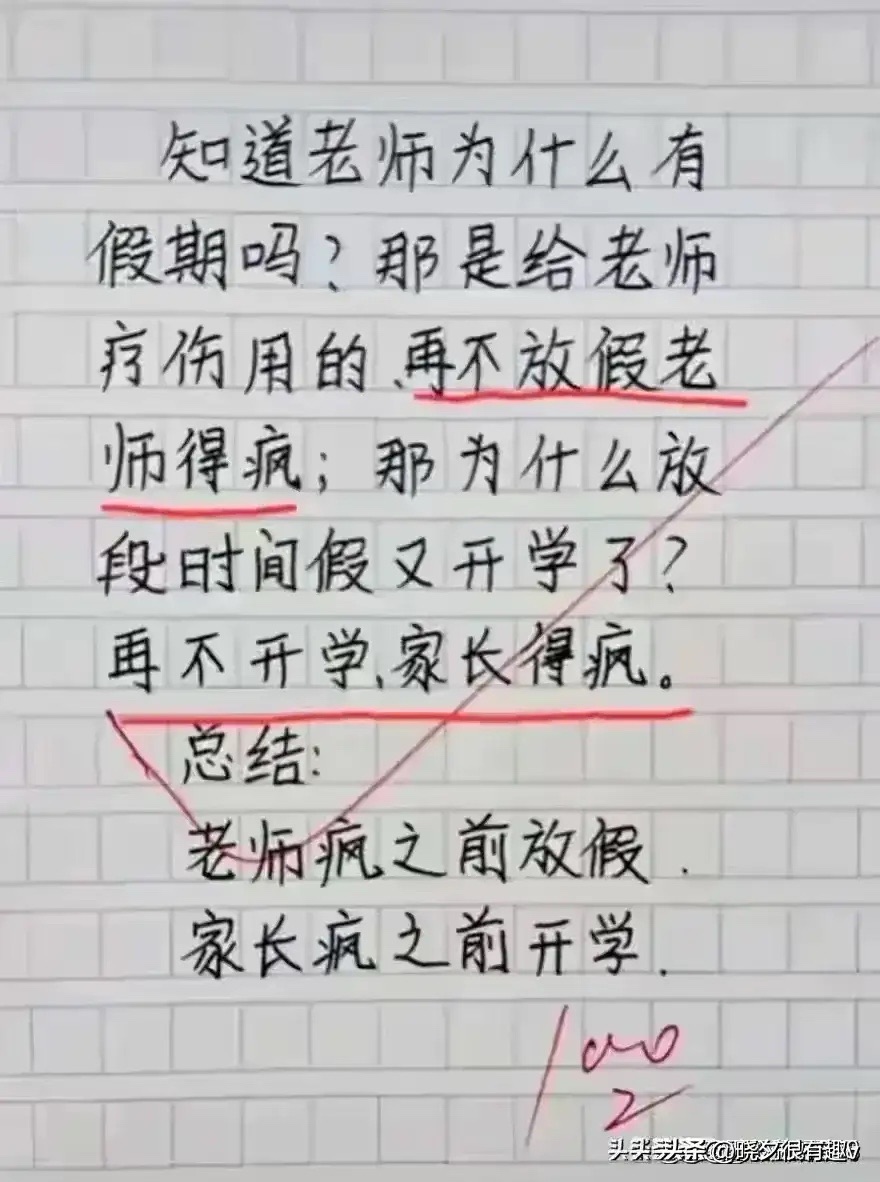 知道老师为什么有
假期吗?那是给老师
疗伤用的、再不放假老
师得疯;那为什么放
段时间假又开学了?
再不开学、家长得疯。
总结:
老师疯之前放假.
家长疯之前开学.
100
2
头条
很有趣